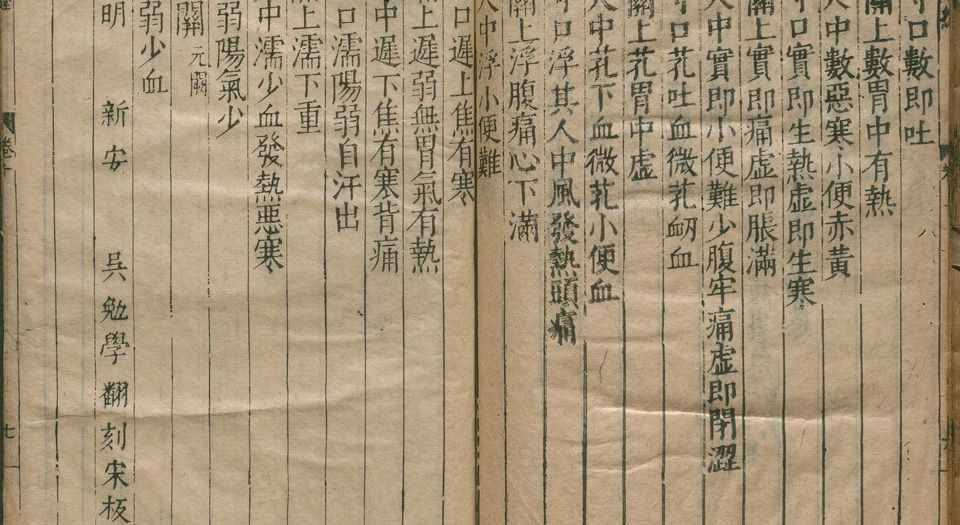 口數即吐
關上數胃中有熱
中數惡寒小便赤黃
口實即生熱虛即生寒
關上實即痛虛即脹滿
中實即小便難少腹牢痛虛即閉澀
口芤吐血微芤衂血
關上芤胃中虛
中芤下血微芤小便血
口浮其人中風發熱頭痛
關上浮腹痛心下滿
中浮小便難
口遲上焦有寒
上遲弱無胃氣有熱
中遲下焦有寒背痛
口濡陽弱自汗出
上濡下重
中濡少血發熱惡寒
弱陽氣少
關 元關
弱少血
明 新安 吳勉學翻刻宋板
七